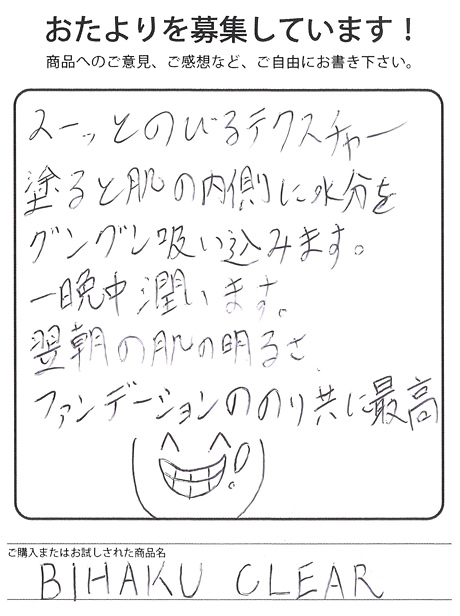 おたよりを募集しています！
商品へのご意見、ご感想など、ご自由にお書き下さい。
スーッとのびるテクスチャー
塗ると肌の内側に水分を
グングン吸い込みます。
一晩中潤います。
翌朝の肌の明るさ
ファンデーションののり共に最高
!
ご購入またはお試しされた商品名
BIHAKU CLEAR